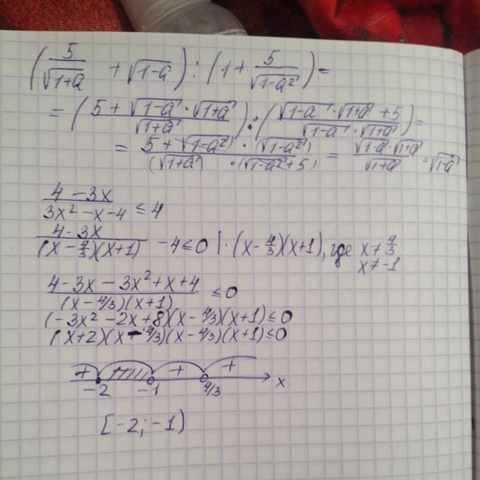 (5/√(1+a) + √(1-a)) : (1 + 5/√(1-a²)) =
= (5 + √(1-a) · √(1+a) / √(1+a)) : (√(1-a) · √(1+a) + 5 / √(1-a) · √(1+a)) =
= 5 + √(1-a²) · (√(1-a²)) / (√(1+a)) · (√(1-a²) + 5) = √(1-a) · √(1+a) / √(1+a) = √(1-a)
4 - 3x / 3x² - x - 4 ≤ 4
4 - 3x / (x - 4/3)(x+1) - 4 ≤ 0 | · (x - 4/3)(x+1), где x ≠ 4/3
x ≠ -1
4 - 3x - 3x² + x + 4 / (x - 4/3)(x+1) ≤ 0
(-3x² - 2x + 8)(x - 4/3)(x+1) ≤ 0
(x+2)(x - 4/3)(x - 4/3)(x+1) ≤ 0
+ + +
-2 -1 4/3 x
[-2; -1)